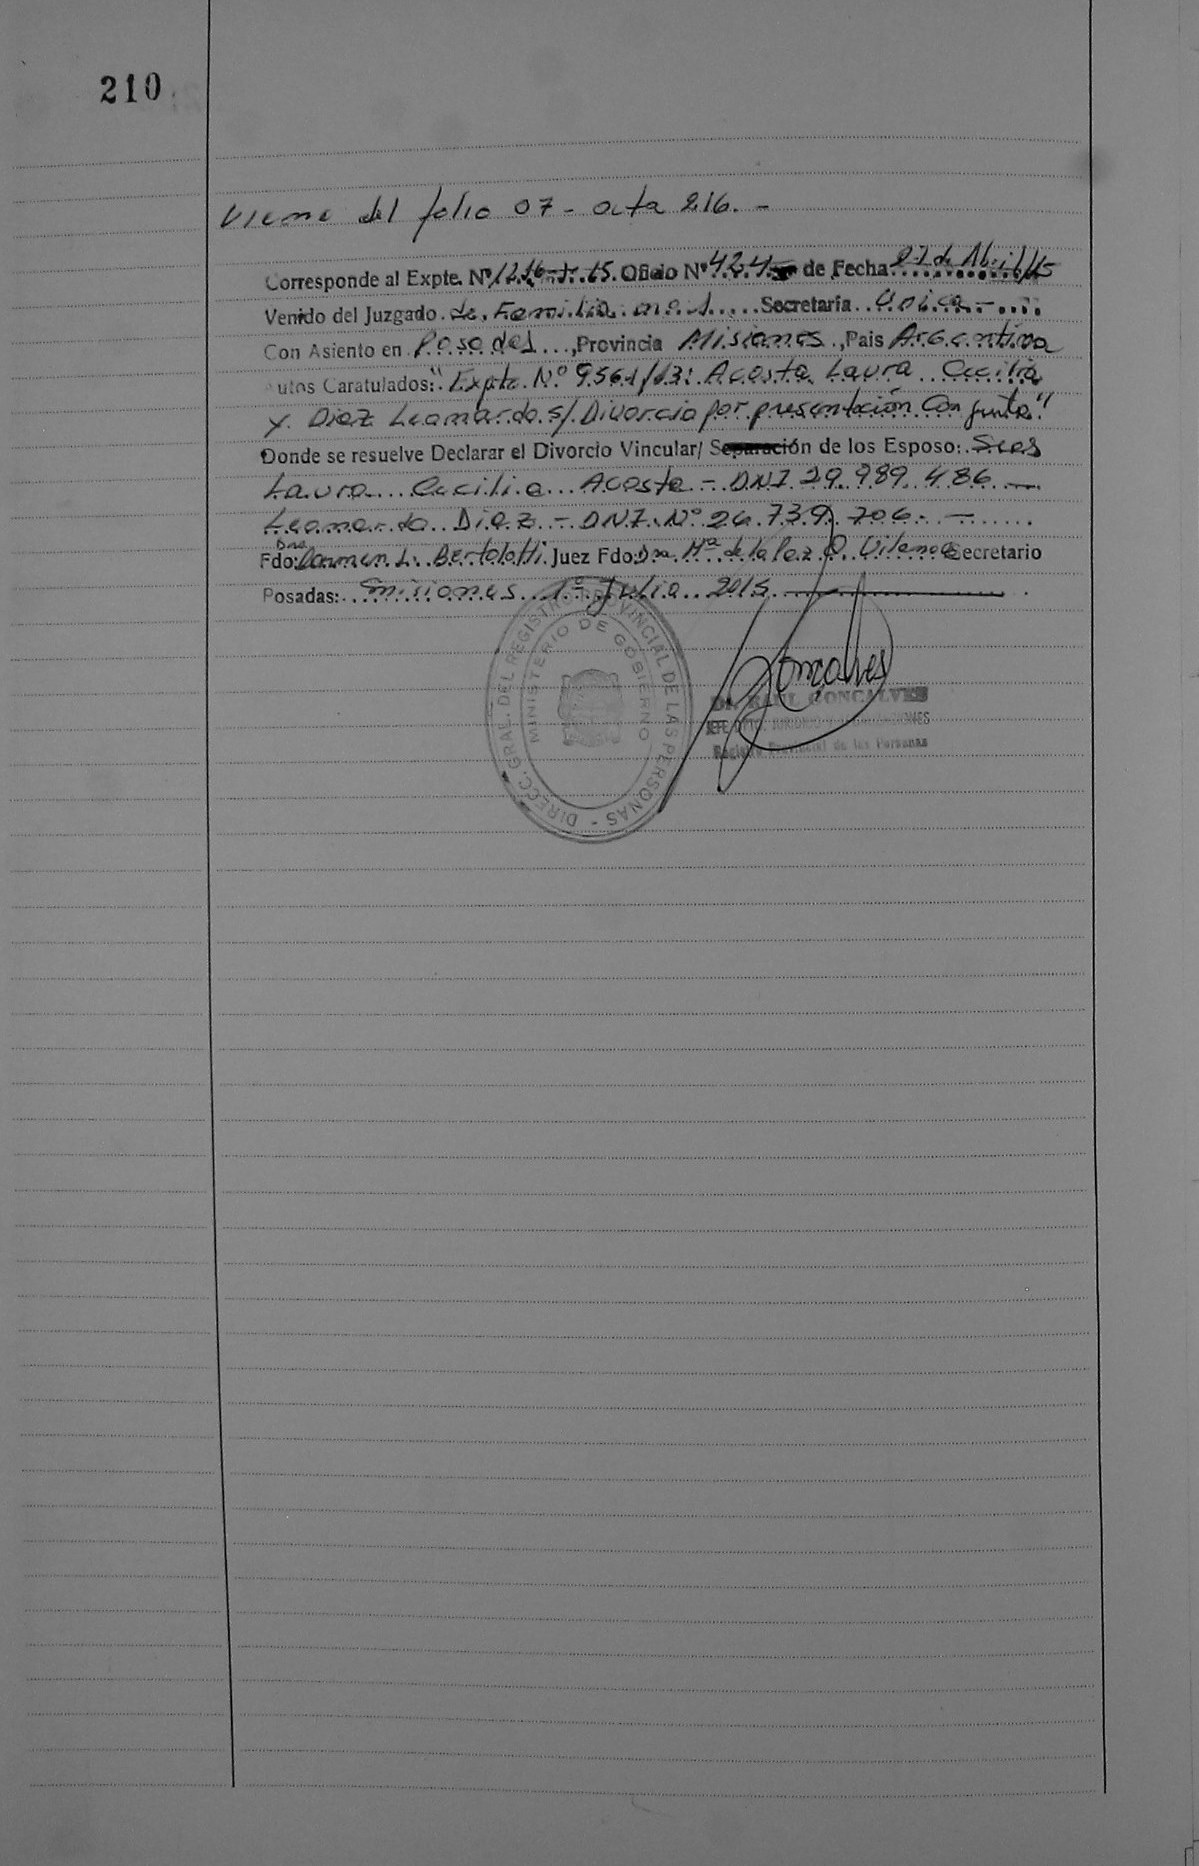 210
Viene del folio 07 - acta 216. -
Corresponde al Expte. Nº Oficio Nº 424 de Fecha 27 de Abril/15
Venido del Juzgado de Familia Secretaría Unica -
Con Asiento en Posadas, Provincia Misiones, Pais Argentina
utos Caratulados: "Expte. Nº 9561/13: Acosta Laura Cecilia
y Diaz Leonardo s/ Divorcio por presentación Conjunta"
Donde se resuelve Declarar el Divorcio Vincular/ Separación de los Esposo: Sres
Laura Cecilia Acosta - DNI 29.989.486 -
Leonardo Diaz - DNI. Nº 26.739.706. -
Fdo: Dra Carmen L. Bertolotti Juez Fdo: Dra Mª de la Paz Secretario
Posadas: Misiones 1º Julio 2015
Gonçalves
DIRECC. GRAL. DEL REGISTRO PROVINCIAL DE LAS PERSONAS -
MINISTERIO DE GOBIERNO
Dr. RAUL GONCALVES
JEFE DPTO. JURIDICO
Registro Provincial de las Personas